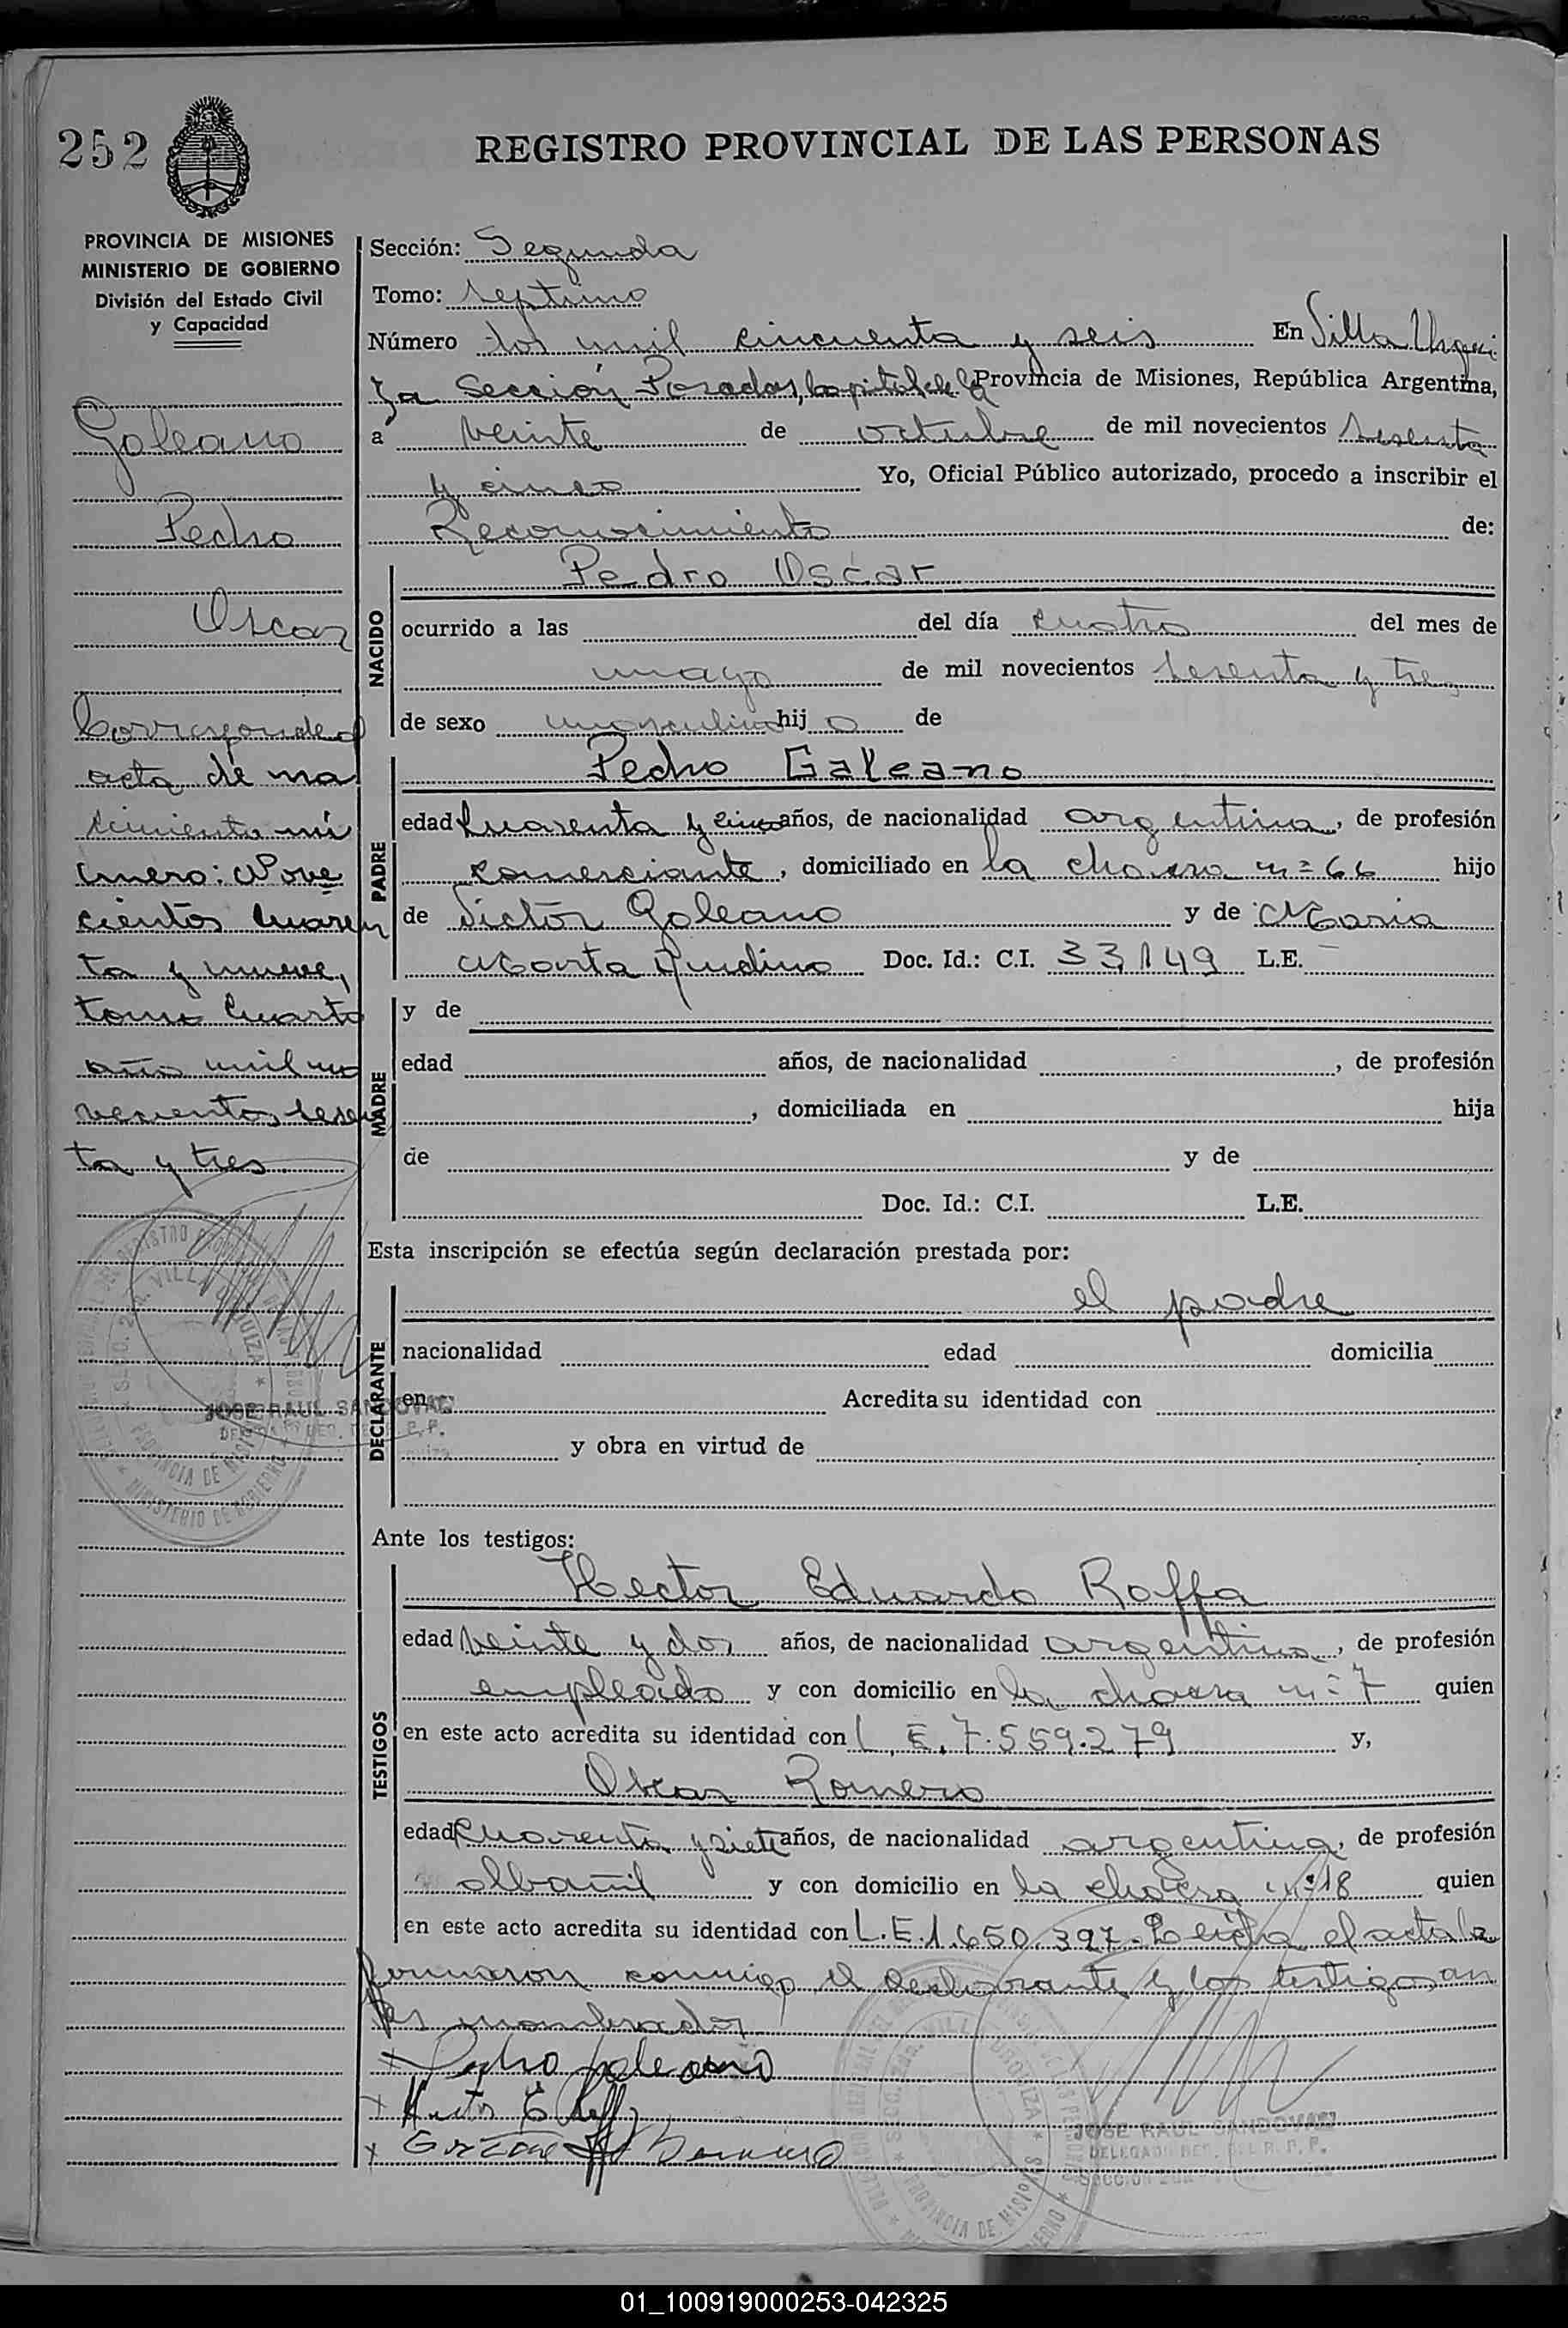 252
REGISTRO PROVINCIAL DE LAS PERSONAS
PROVINCIA DE MISIONES
MINISTERIO DE GOBIERNO
División del Estado Civil
y Capacidad
Galeano
Pedro
Oscar
Corresponde al
acta de na
cimiento nú
mero: Nove
cientos cuaren
ta y nueve,
tomo cuarto
año mil no
vecientos sesen
ta y tres
JOSE RAUL SANDOVAL
Sección: Segunda
Tomo: septimo
Número dos mil cincuenta y seis En Villa Urqui
za Sección Posadas, Capital de la Provincia de Misiones, República Argentina,
a veinte de octubre de mil novecientos sesenta
y cinco Yo, Oficial Público autorizado, procedo a inscribir el
Reconocimiento de:
NACIDO
Pedro Oscar
ocurrido a las del día cuatro del mes de
mayo de mil novecientos sesenta y tres
de sexo masculino hijo de
PADRE
Pedro Galeano
edad cuarenta y cinco años, de nacionalidad argentina, de profesión
comerciante, domiciliado en la chacra nº 66 hijo
de Victor Galeano y de Maria
Doc. Id.: C.I. 33,149 L.E.
MADRE
y de
edad años, de nacionalidad , de profesión
, domiciliada en hija
de y de
Doc. Id.: C.I. L.E.
Esta inscripción se efectúa según declaración prestada por:
DECLARANTE
el padre
nacionalidad edad domicilia
en Acredita su identidad con
y obra en virtud de
Ante los testigos:
TESTIGOS
Hector Eduardo Raffa
edad veinte y dos años, de nacionalidad argentina, de profesión
empleado y con domicilio en la chacra nº 7 quien
en este acto acredita su identidad con L.E. 7.559.279 y,
Oscar Romero
edad cuarenta y siete años, de nacionalidad argentina, de profesión
albañil y con domicilio en la chacra nº 18 quien
en este acto acredita su identidad con L.E.1.650.397. Leida el acta la
firmaron conmigo el declarante y los testigos an
tes nombrados
Pedro Galeano
JOSE RAUL SANDOVAL
DELEGADO
01_100919000253-042325